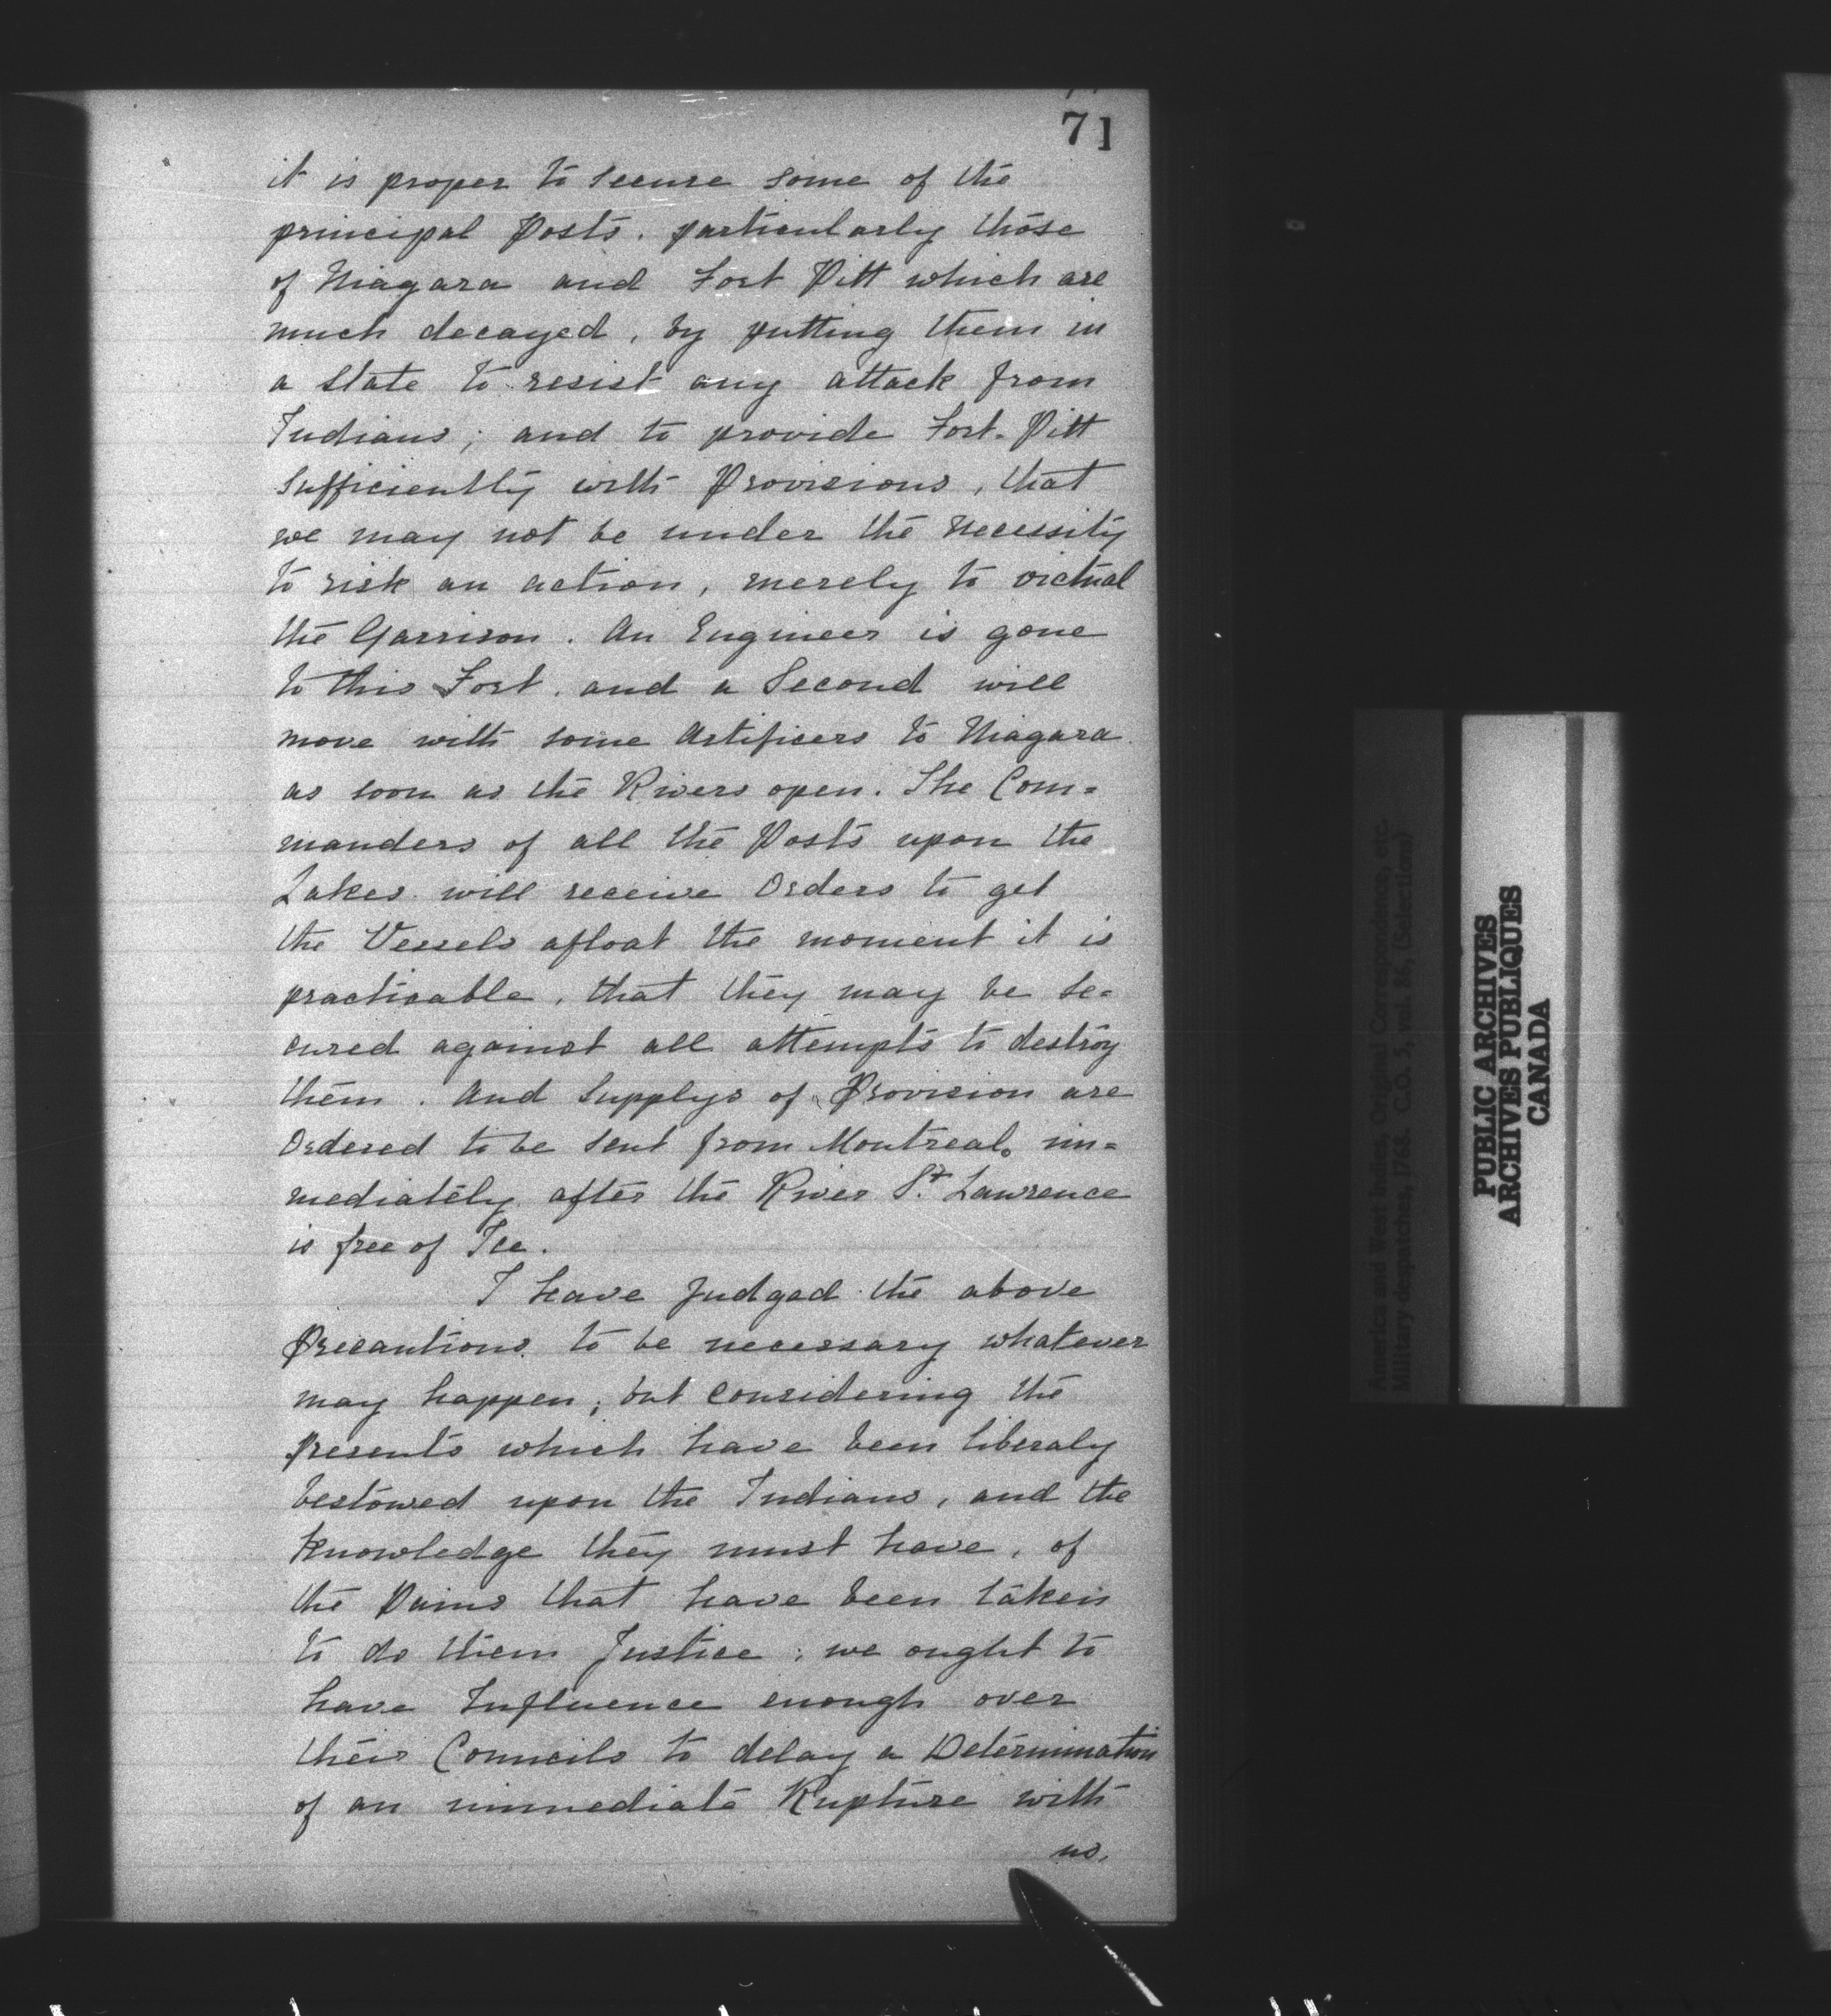 71
it is proper to secure some of the
principal Posts, particularly those
of Niagara and Fort Pitt which are
much decayed, by putting them in
a State to resist any attack from
Indians; and to provide Fort-Pitt
Sufficiently with Provisions, that
we may not be under the Necessity
to risk an action, merely to victual
the Garrison. An Engineer is gone
to this Fort, and a Second will
move with some Artificers to Niagara
as soon as the Rivers open. The Com=
manders of all the Posts upon the
Lakes will receive Orders to get
the Vessels afloat the moment it is
practicable, that they may be se=
cured against all attempts to destroy
them. And Supplys of Provision are
Ordered to be sent from Montreal, im=
mediately after the River St. Lawrence
is free of Ice.
I have Judged the above
Precautions to be necessary whatever
may happen; but considering the
Presents which have been liberaly
bestowed upon the Indians, and the
Knowledge they must have, of
the Pains that have been taken
to do them Justice; we ought to
have Influence enough over
their Councils to delay a Determination
of an immediate Rupture with
us,
America and West Indies, Original Correspondence, etc.
Military despatches, 1768. C.O. 5, vol. 86, (Selections)
PUBLIC ARCHIVES
ARCHIVES PUBLIQUES
CANADA